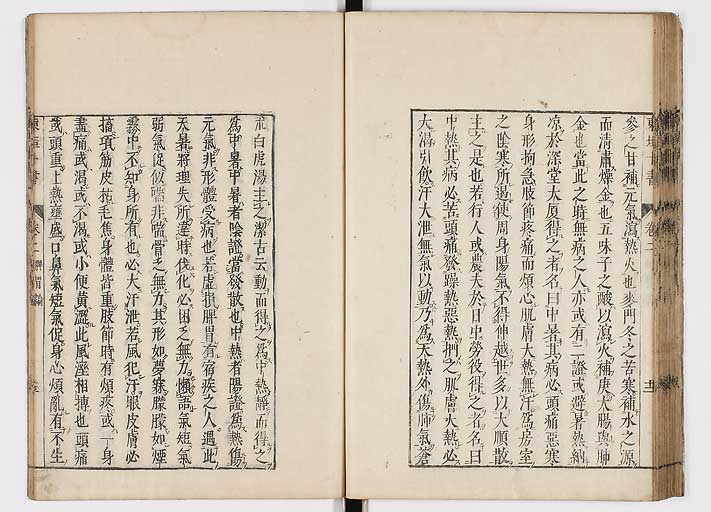 參之甘補元氣瀉熱火也麥門冬之苦寒補水之源
而清肅燥金也五味子之酸以瀉火補庚大腸與肺
金也當此之時無病之人亦或有二證或避暑熱納
凉於深堂大厦得之者名曰中暑其病必頭痛惡寒
身形拘急肢節疼痛而煩心肌膚大熱無汗爲房室
之陰寒所遏使周身陽氣不得伸越世多以大順散
主之是也若行人或農夫於日中勞役得之者名曰
中熱其病必苦頭痛發躁熱惡熱捫之肌膚大熱必
大渴引飮汗大泄無氣以動乃爲天熱外傷肺氣蒼
朮白虎湯主之潔古云動而得之爲中熱靜而得之
爲中暑中暑者陰證當發散也中熱者陽證爲熱傷
元氣非形體受病也若虛損脾胃有宿疾之人遇此
天暑將理失所違時伐化必困乏無力懶語氣短氣
弱氣促似喘非喘骨乏無力其形如夢寐朦朦如煙
霧中不知身所有也必大汗泄若風犯汗眼皮膚必
搐項筋皮枯毛焦身體皆重肢節時有煩疼或一身
盡痛或渴或不渴或小便黃澀此風溼相搏也頭痛
或頭重上熱壅盛口鼻氣短氣促身心煩亂有不生
卷二
卷二
脾胃論